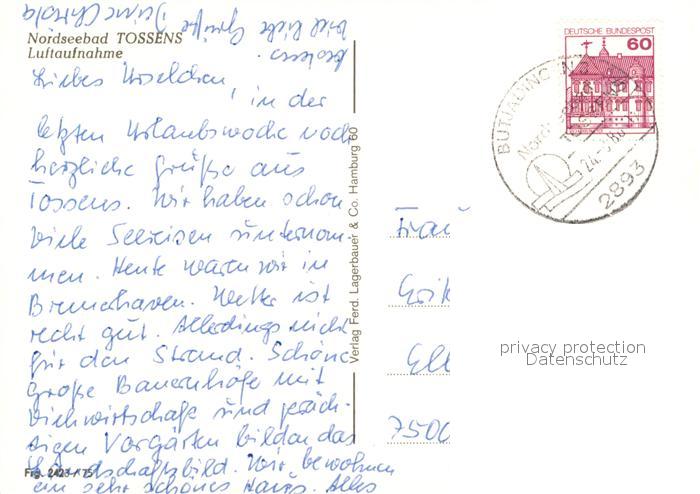 Nordseebad TOSSENS
Luftaufnahme
Liebes Urselchen,
in der
letzten Urlaubswoche noch
herzliche Grüße aus
Tossens. Wir haben schon
viele Seereisen unternom-
men. Heute waren wir in
Bremerhaven. Wetter ist
recht gut. Allerdings nicht
für den Strand. Schöne
große Bauernhöfe mit
Viehwirtschaft und präch-
tigen Vorgärten bilden das
Landschaftsbild. Wir bewohnen
ein sehr schönes Haus. Alles
viel liebe Grüße Deine
Frg. 2423 / 75
Verlag Ferd. Lagerbauer & Co. Hamburg 60
DEUTSCHE BUNDESPOST
60
BUTJADINGEN
Nordseebad
2893
Frau
7500
privacy protection
Datenschutz